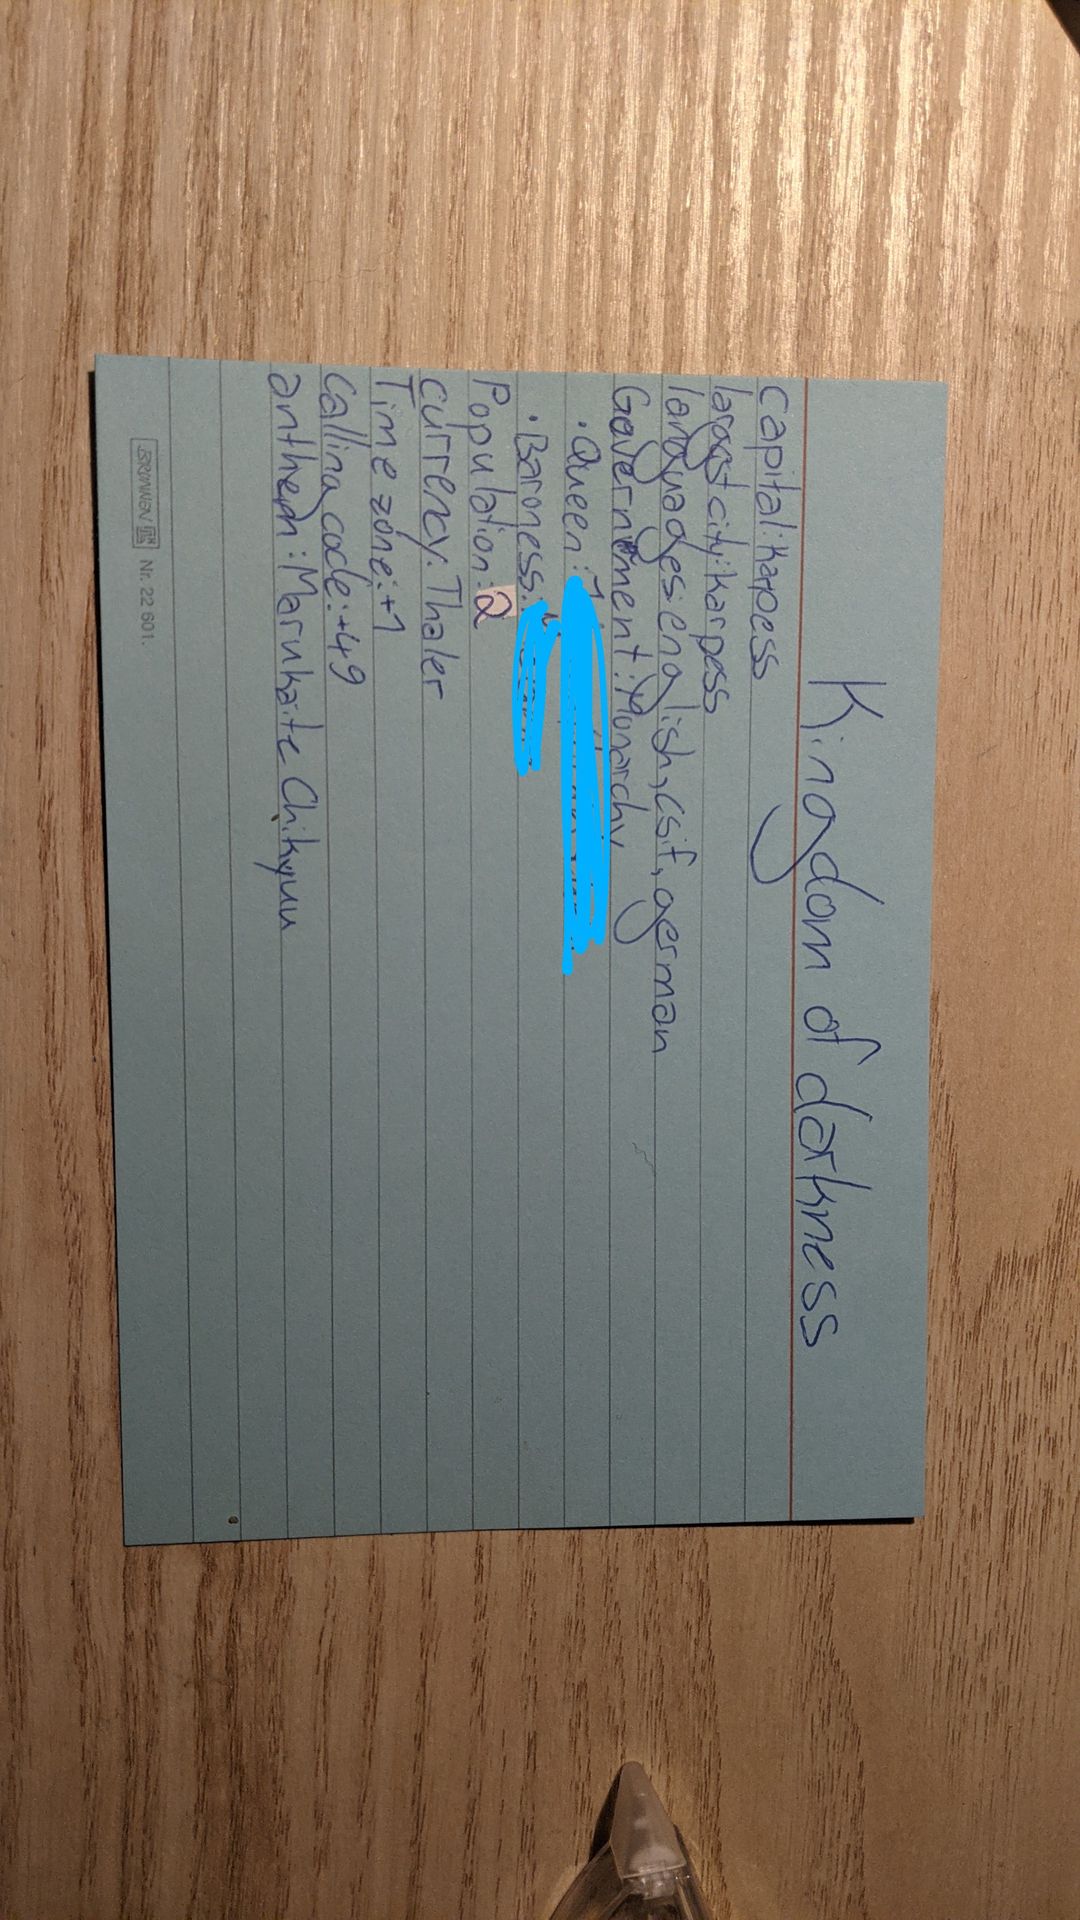 Kingdom of darkness
capital: Karpess
largest city: karpess
languages: english, csif, german
Government: Monarchy
· Queen:
· Baroness:
Population: 2
currency: Thaler
Time zone: +1
Calling code: +49
anthem: Marunkaite Chikyuu
BRUNNEN Nr. 22 601.